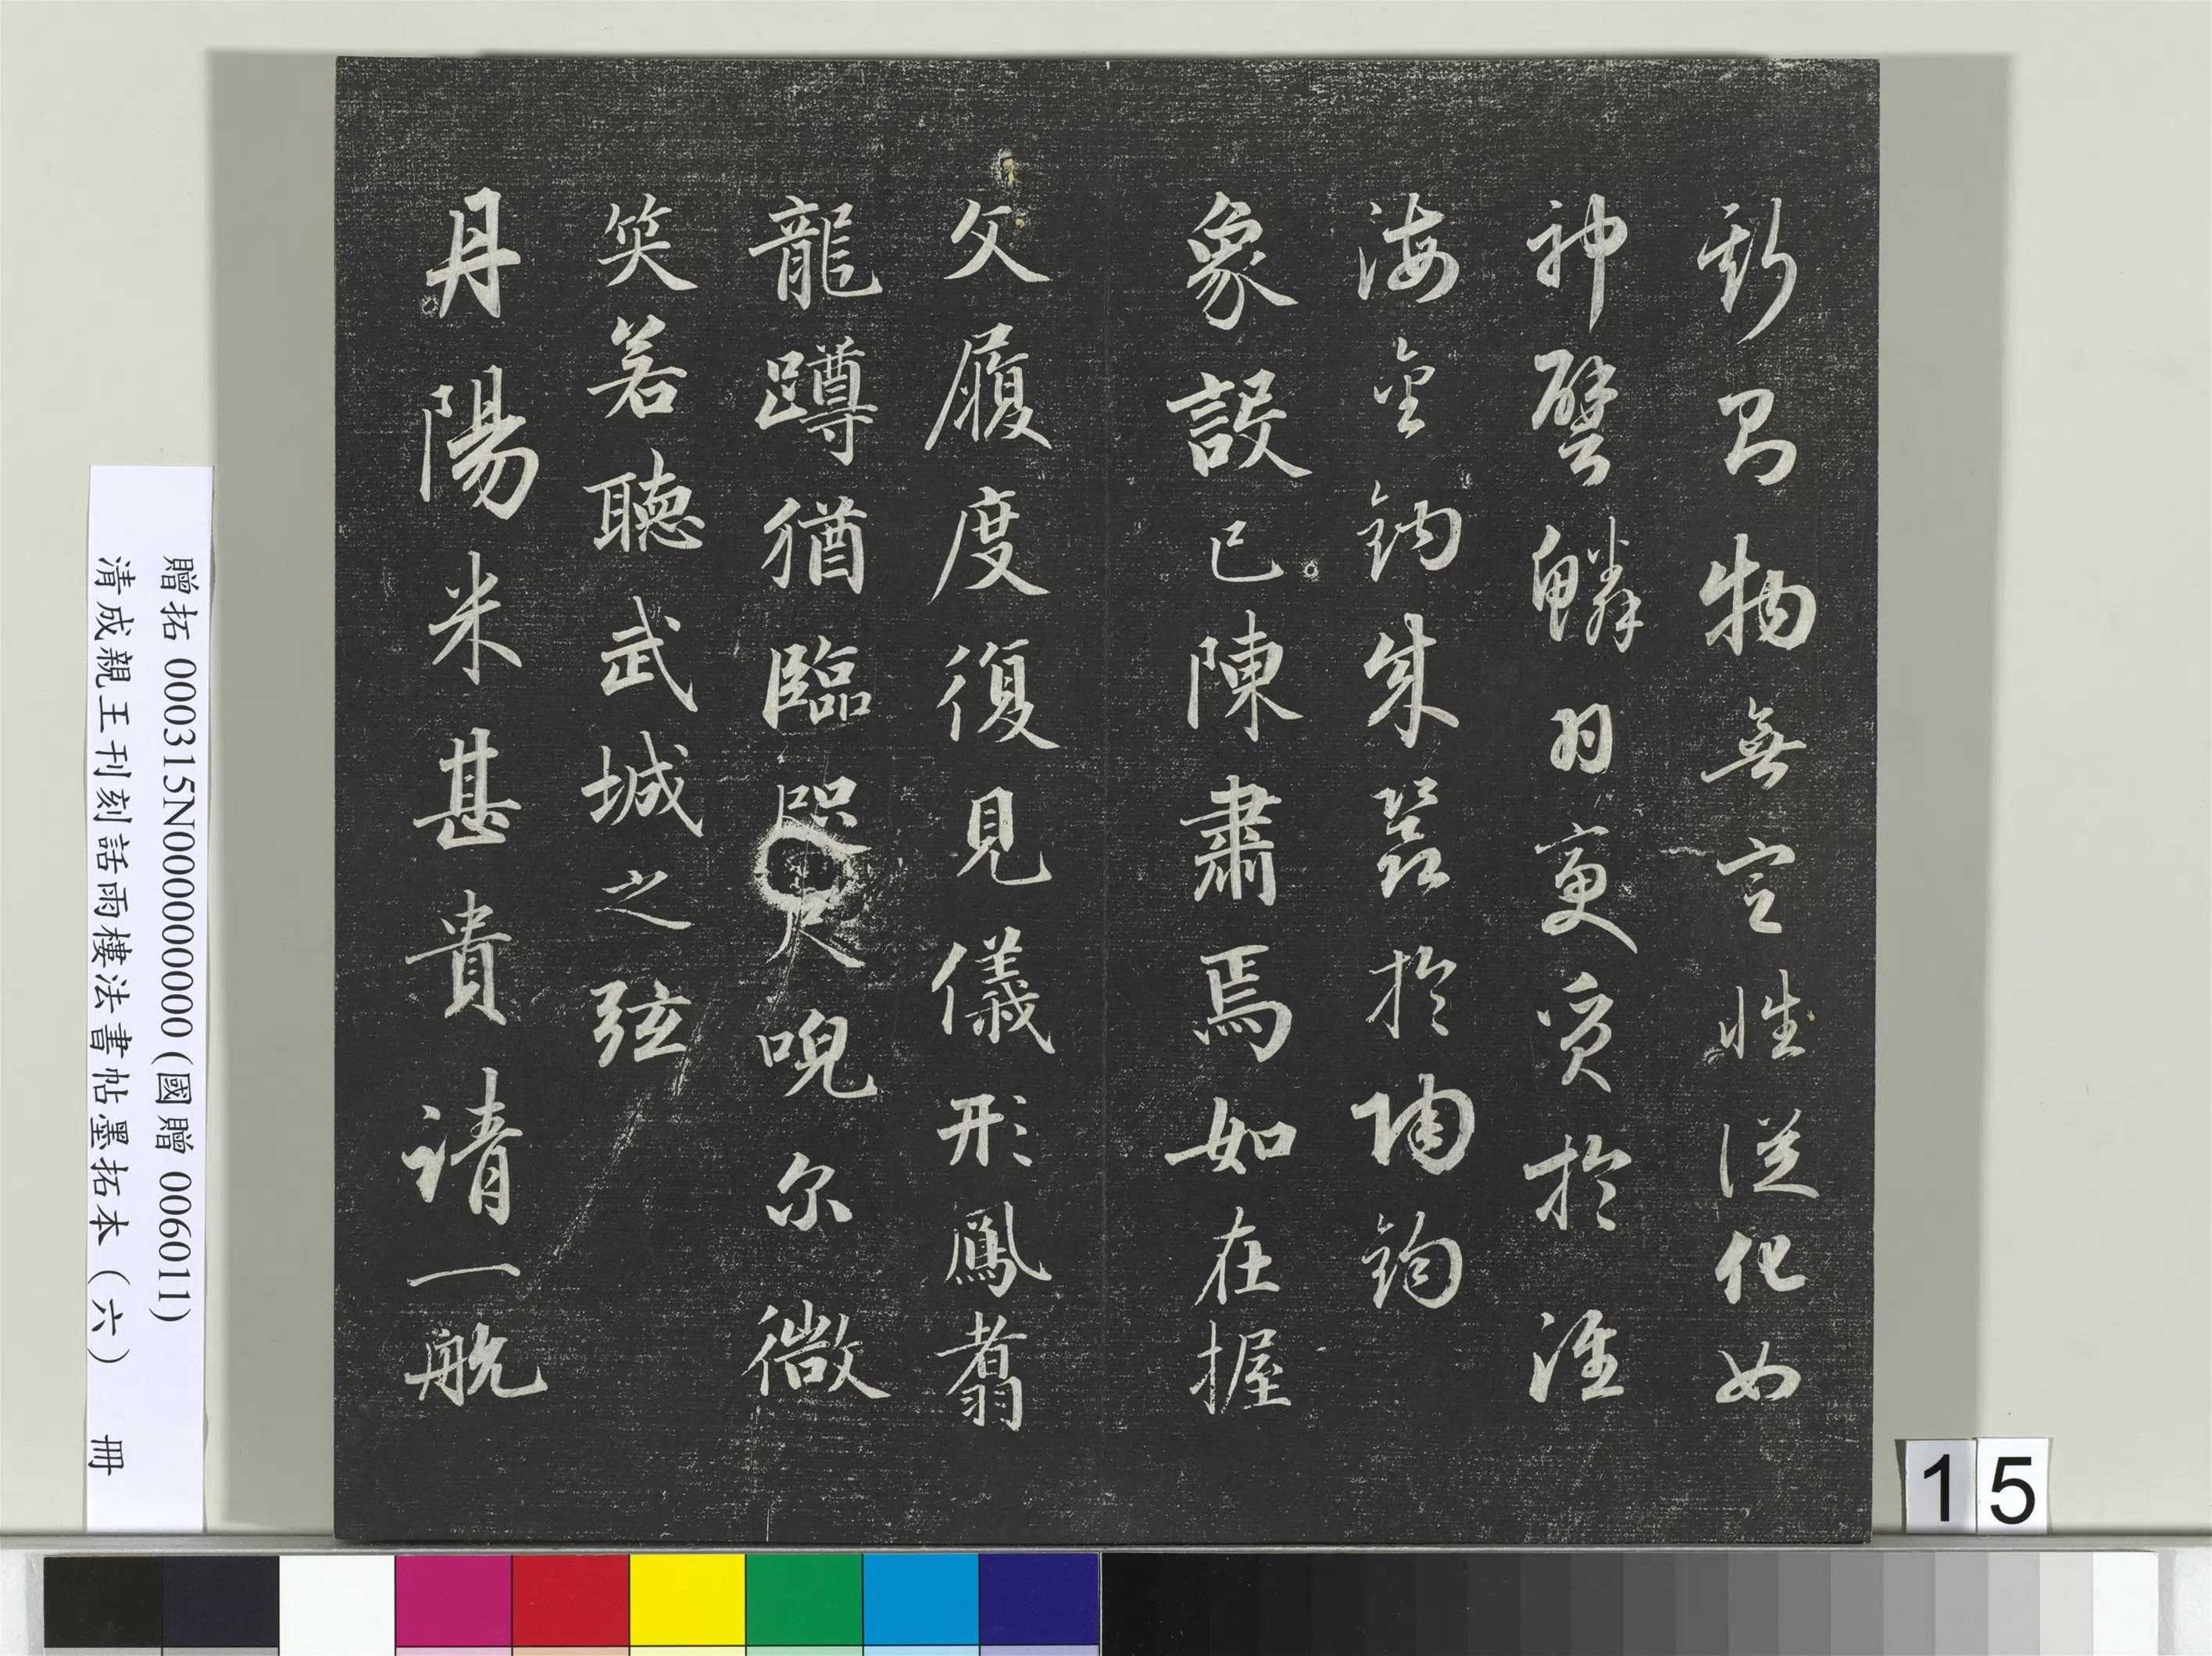 斯知物無定性從化如
神譬鱗羽變質於淮
海金成器於陶鈞
象設已陳肅焉如在握
文履度復見儀形鳳翥
龍蹲猶臨咫尺唲尔微
笑若聽武城之弦
丹陽米甚貴請一航
贈拓 000315N000000000 (國贈 006011)
清成親王刊刻話雨樓法書帖墨拓本（六） 冊
15